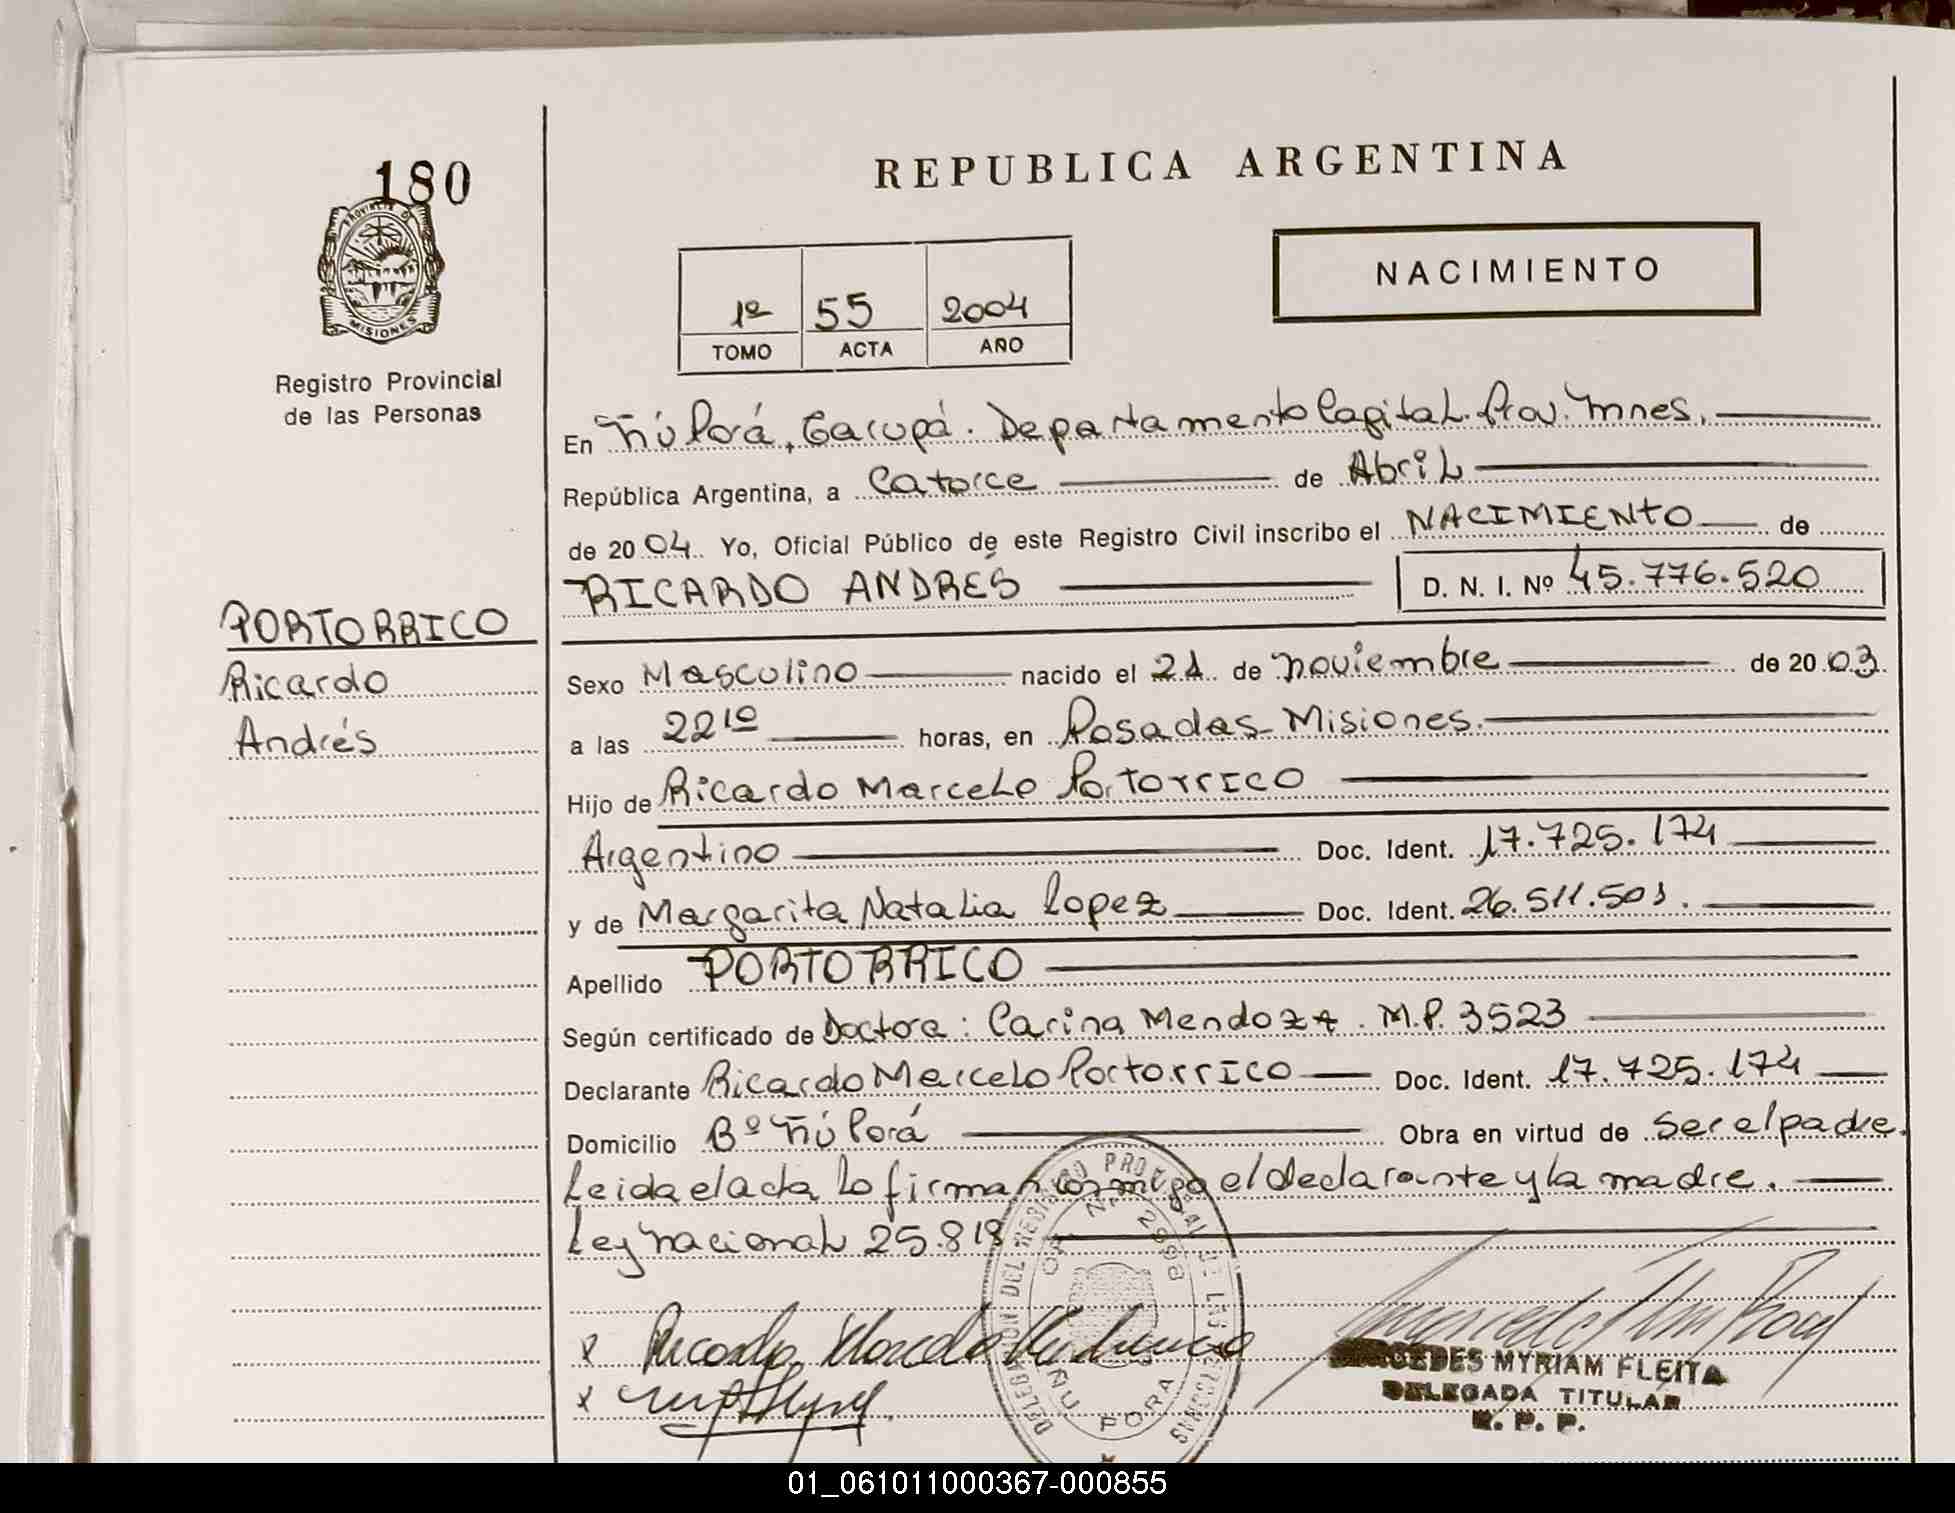 180
PROVINCIA DE
MISIONES
Registro Provincial
de las Personas
PORTORRICO
Ricardo
Andrés
REPUBLICA ARGENTINA
NACIMIENTO
1º 55 2004
TOMO ACTA AÑO
En Ñú Porá, Garupá. Departamento Capital. Prov. Mnes.
República Argentina, a Catorce de Abril
de 2004. Yo, Oficial Público de este Registro Civil inscribo el NACIMIENTO de
RICARDO ANDRÉS D. N. I. Nº 45.776.520
Sexo Masculino nacido el 21 de noviembre de 2003.
a las 22 10 horas, en Posadas Misiones.
Hijo de Ricardo Marcelo Portorrico
Argentino Doc. Ident. 17.725.174
y de Margarita Natalia Lopez Doc. Ident. 26.511.501.
Apellido PORTORRICO
Según certificado de Doctora: Carina Mendoza. M.P. 3523
Declarante Ricardo Marcelo Portorrico Doc. Ident. 17.725.174
Domicilio Bº Ñú Porá Obra en virtud de Ser el padre.
Leida el acta lo firman conmigo el declarante y la madre.
Ley nacional 25.818
DELEGACION DEL REGISTRO PROVINCIAL DE LAS PERSONAS
OF. Nº 2998
ÑU PORA
x
x
MERCEDES MYRIAM FLEITA
DELEGADA TITULAR
R. P. P.
01_061011000367-000855